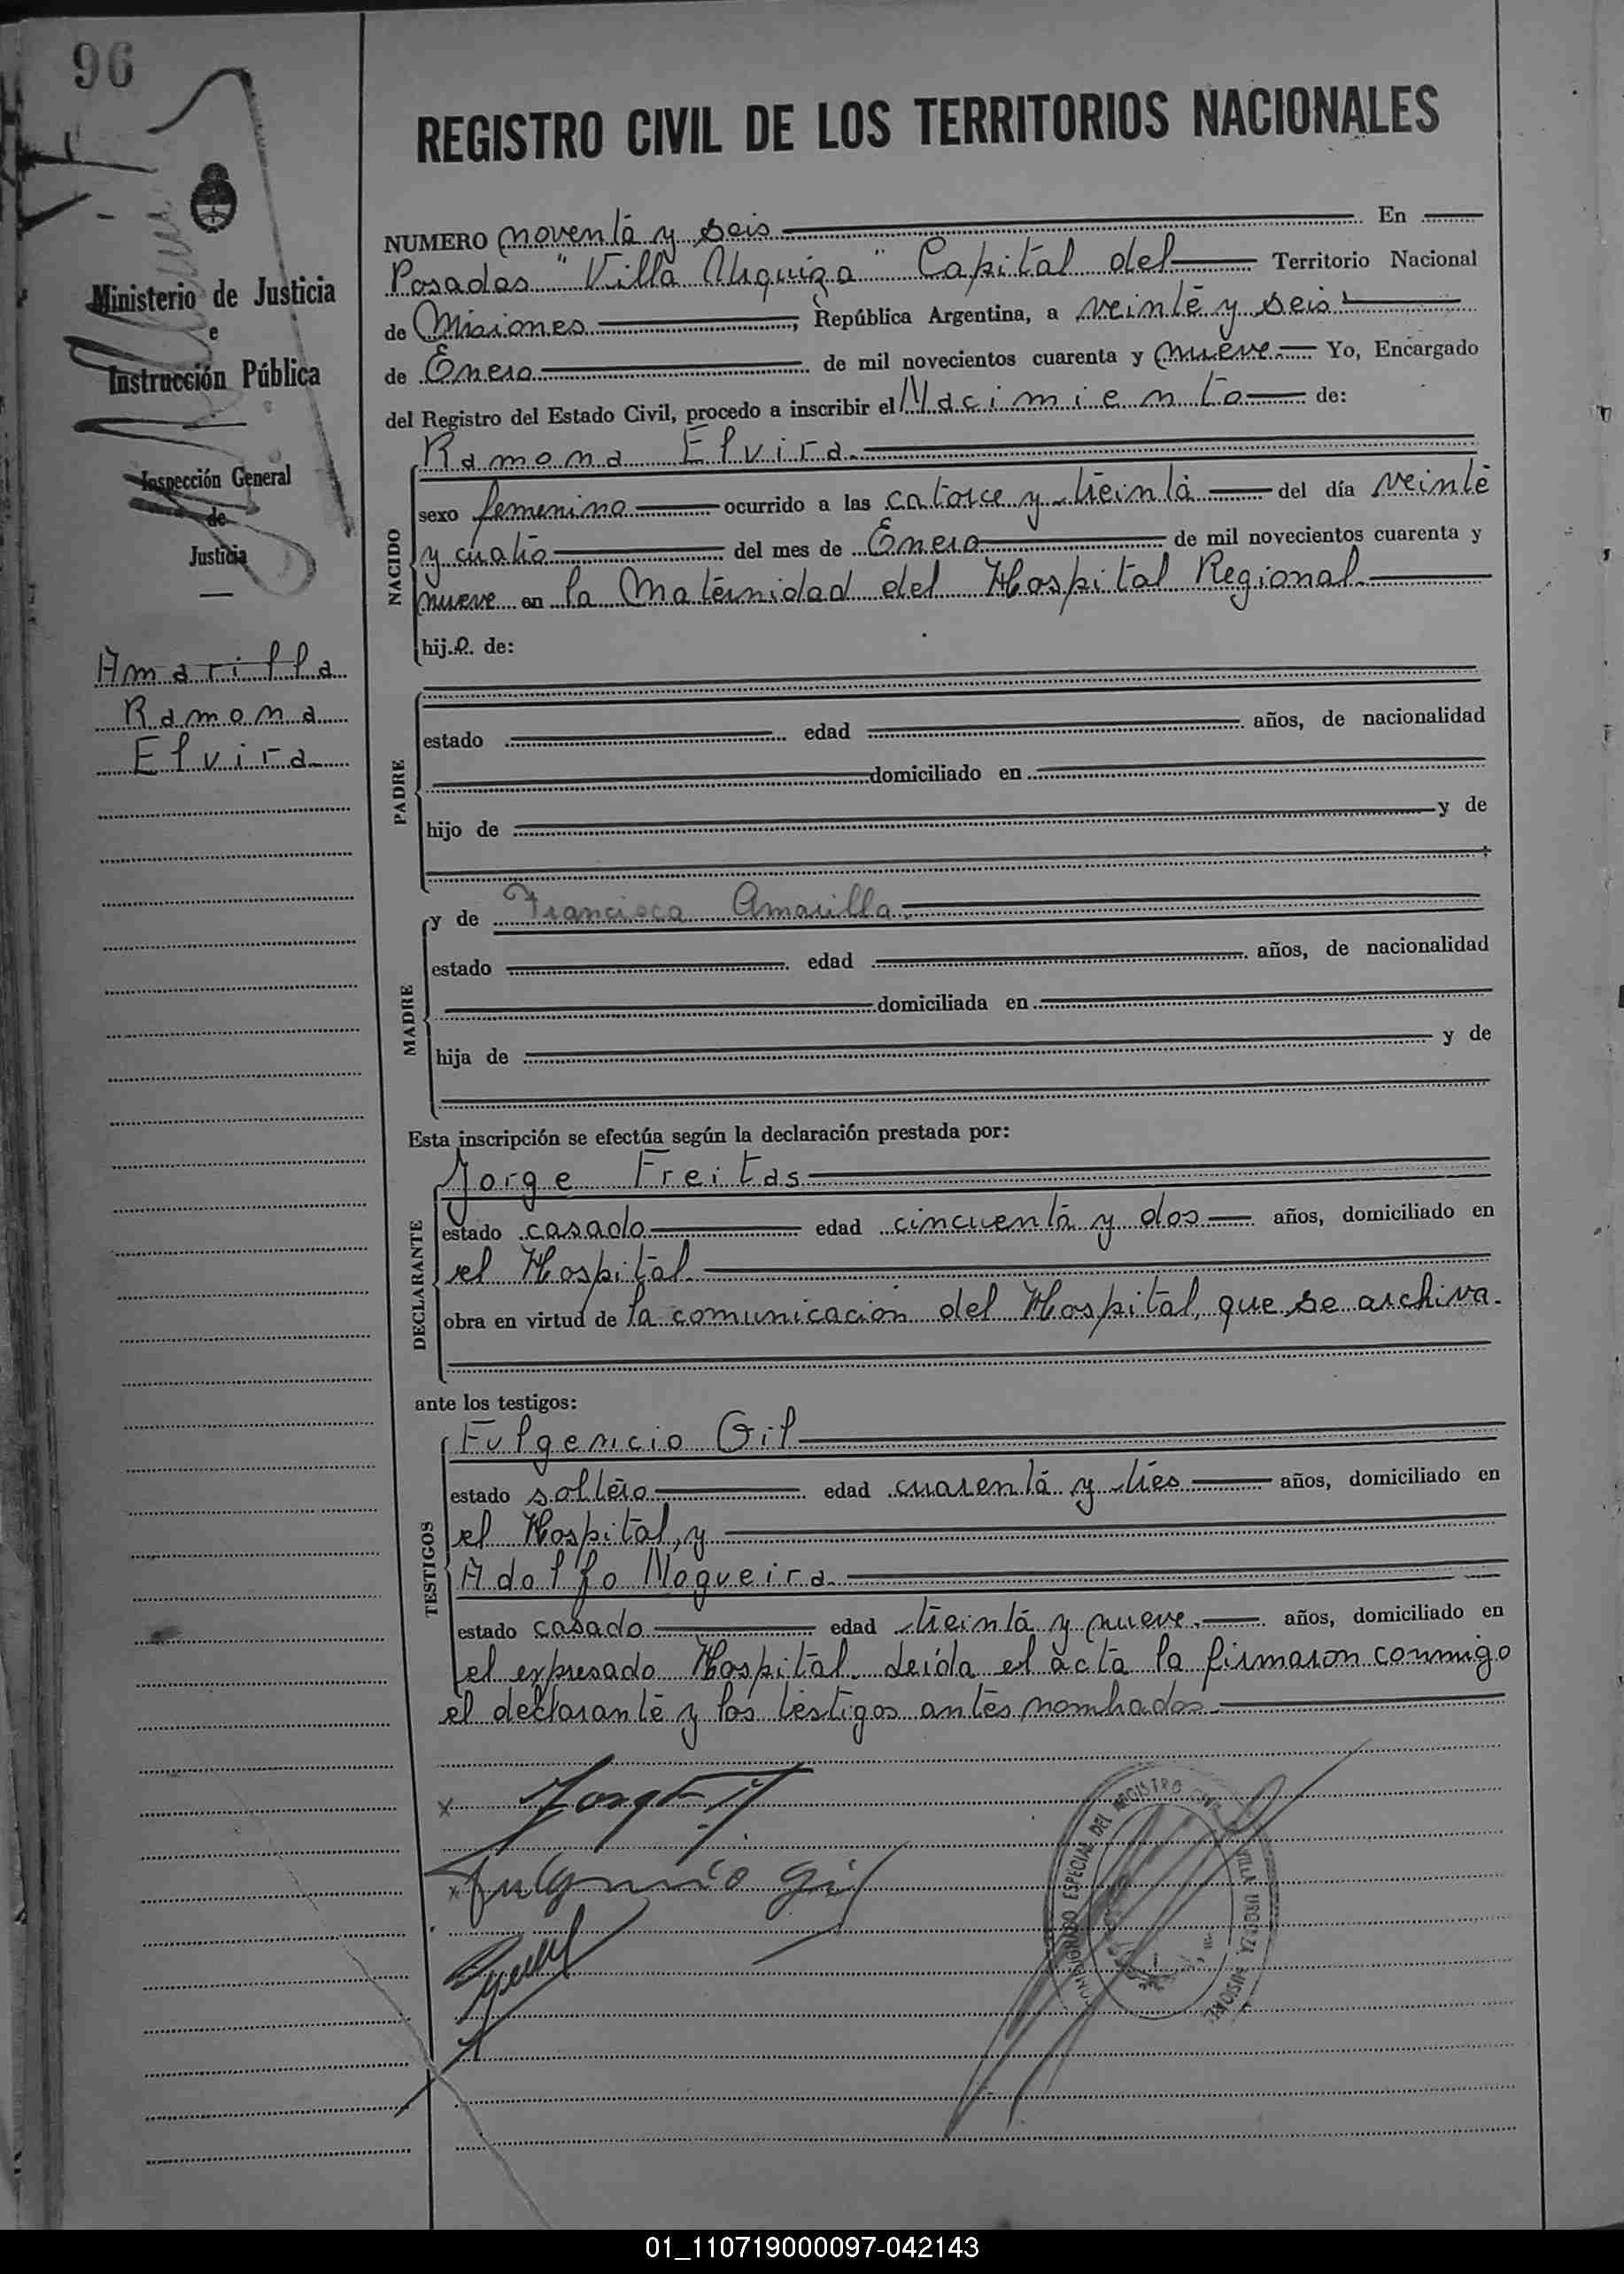 96
Ministerio de Justicia
e
Instrucción Pública
Inspección General
de
Justicia
Amarilla
Ramona
Elvira
REGISTRO CIVIL DE LOS TERRITORIOS NACIONALES
NUMERO noventa y seis En
Posadas "Villa Urquiza" Capital del Territorio Nacional
de Misiones, República Argentina, a veinte y seis
de Enero de mil novecientos cuarenta y nueve. Yo, Encargado
del Registro del Estado Civil, procedo a inscribir el Nacimiento de:
Ramona Elvira.
NACIDO
sexo femenino ocurrido a las catorce y treinta del día veinte
y cuatro del mes de Enero de mil novecientos cuarenta y
nueve en la Maternidad del Hospital Regional.
hija de:
PADRE
estado edad años, de nacionalidad
domiciliado en
hijo de y de
MADRE
y de Francisca Amarilla.
estado edad años, de nacionalidad
domiciliada en
hija de y de
Esta inscripción se efectúa según la declaración prestada por:
DECLARANTE
Jorge Freitas
estado casado edad cincuenta y dos años, domiciliado en
el Hospital.
obra en virtud de la comunicación del Hospital, que se archiva.
ante los testigos:
TESTIGOS
Fulgencio Gil
estado soltero edad cuarenta y tres años, domiciliado en
el Hospital, y
Adolfo Nogueira.
estado casado edad treinta y nueve. años, domiciliado en
el expresado Hospital. Leída el acta la firmaron conmigo
el declarante y los testigos antes nombrados.
Fulgencio Gil
ESPECIAL DEL REGISTRO VILLA URQUIZA MISIONES
01_110719000097-042143